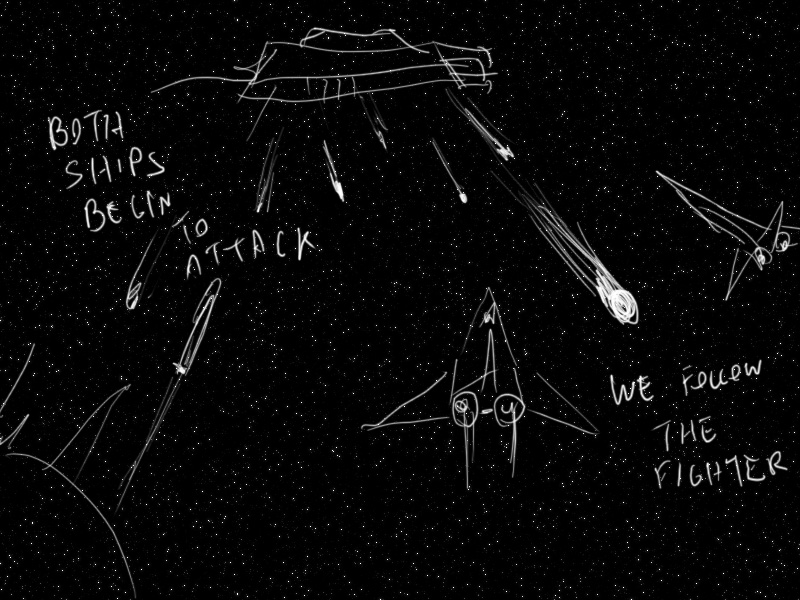 BOTH
SHIPS
BEGIN
TO
ATTACK
WE FOLLOW
THE
FIGHTER